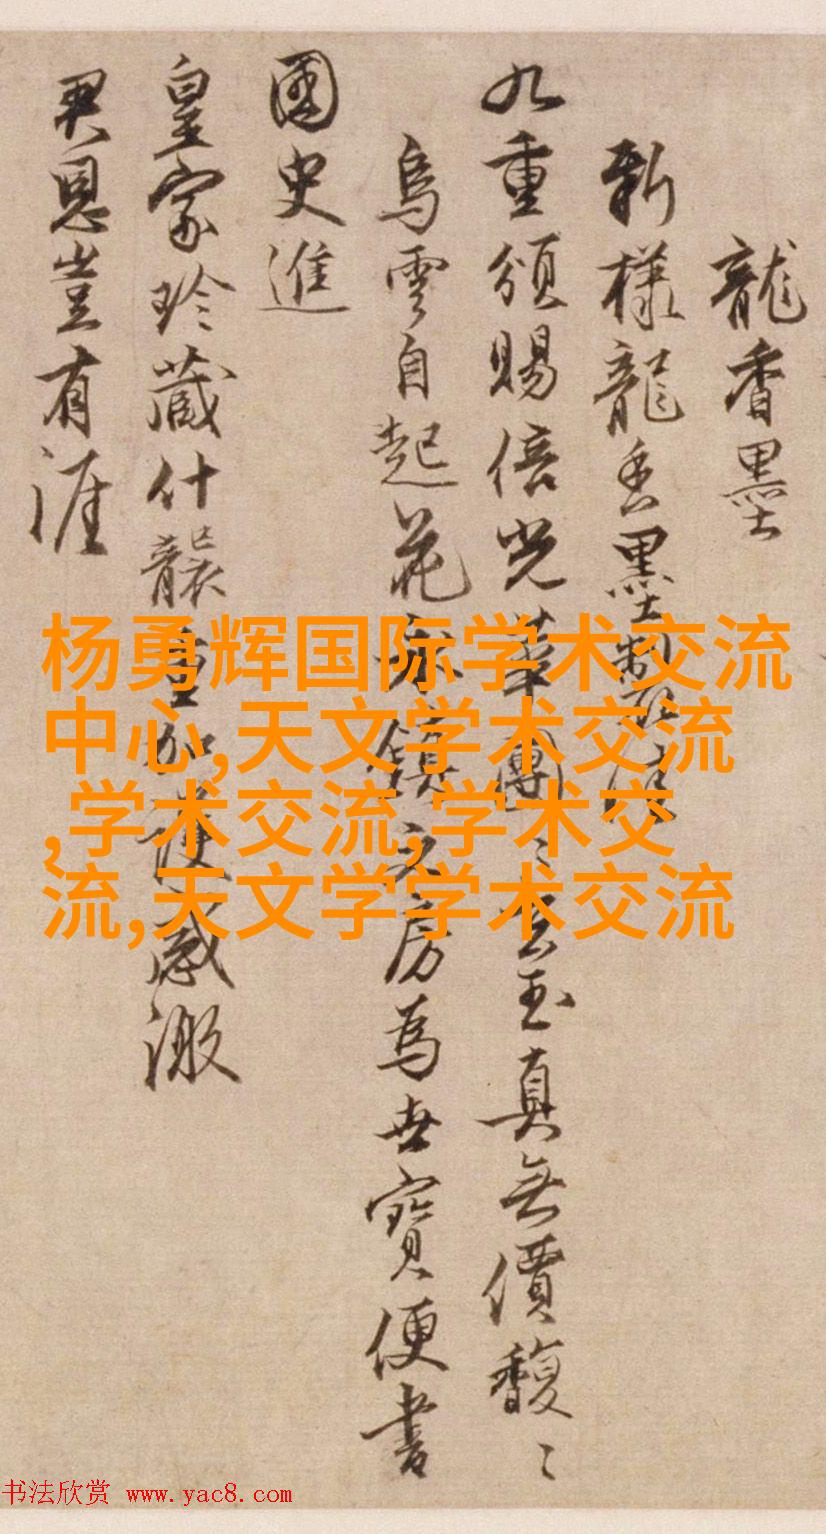 龍香墨
新樣龍香墨製佳
九重頒賜倍光華團〻玄玉真無價馥〻
烏雲自起花永鎮文房為世寶便書
國史進
皇家珍藏什襲重加護感激
君恩豈有涯
杨勇辉国际学术交流
中心,天文学术交流
,学术交流,学术交
流,天文学学术交流
书法欣赏 www.yac8.com